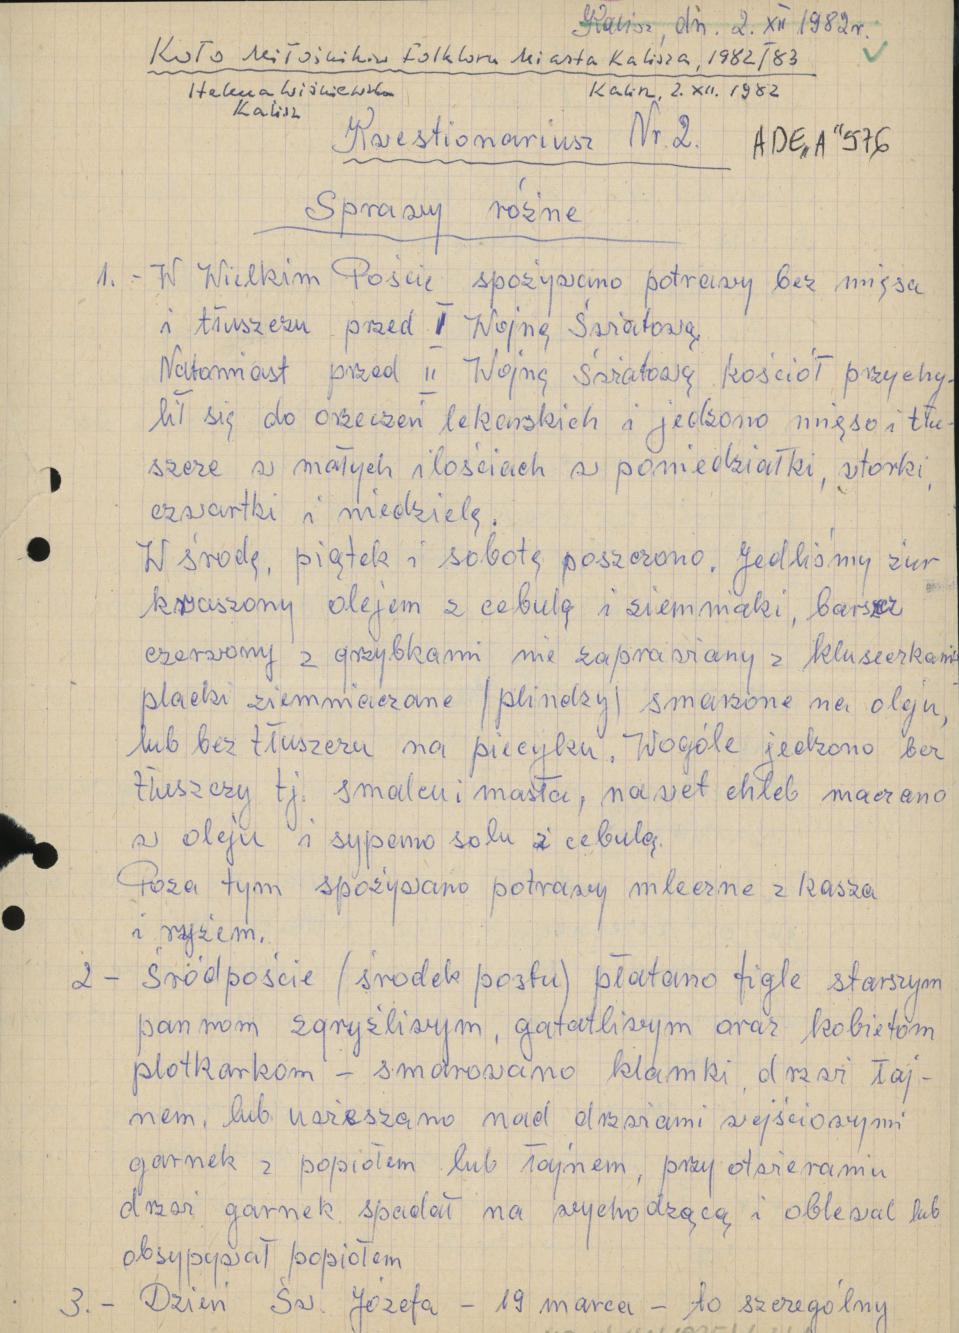 Kalisz, dn. 2. XII 1982r.
Koło Miłośników Folkloru Miasta Kalisza, 1982/83
Helena Wiśniewska Kalisz, 2. XII. 1982
Kalisz
Kwestionariusz Nr. 2. ADE„A"576
Sprawy różne
1. - W Wielkim Poście spożywano potrawy bez mięsa
i tłuszczu przed I Wojną Światową
Natomiast przed II Wojną Światową kościół przychy-
lił się do orzeczeń lekarskich i jedzono mięso i tłu-
szcze w małych ilościach w poniedziałki, wtorki,
czwartki i niedzielę.
W środę, piątek i sobotę poszczono. Jedliśmy żur
kraszony olejem z cebulą i ziemniaki, barszcz
czerwony z grzybkami nie zaprawiany z kluseczkami
placki ziemniaczane (plindzy) smażone na oleju,
lub bez tłuszczu na piecyku. Wogóle jedzono bez
tłuszczy tj. smalcu i masła, nawet chleb maczano
w oleju i sypano solu z cebulą.
Poza tym spożywano potrawy mleczne z kasza
i ryżem.
2 - Śródpoście (środek postu) płatano figle starszym
pannom zgryźliwym, gatatliwym oraz kobietom
plotkarkom - smarowano klamki drzwi łaj-
nem, lub uwieszano nad drzwiami wejściowymi
garnek z popiołem lub łajnem, przy otwieraniu
drzwi garnek spadał na wychodzącą i oblewał lub
obsypywał popiołem
3. - Dzień Św. Józefa - 19 marca - to szczególny